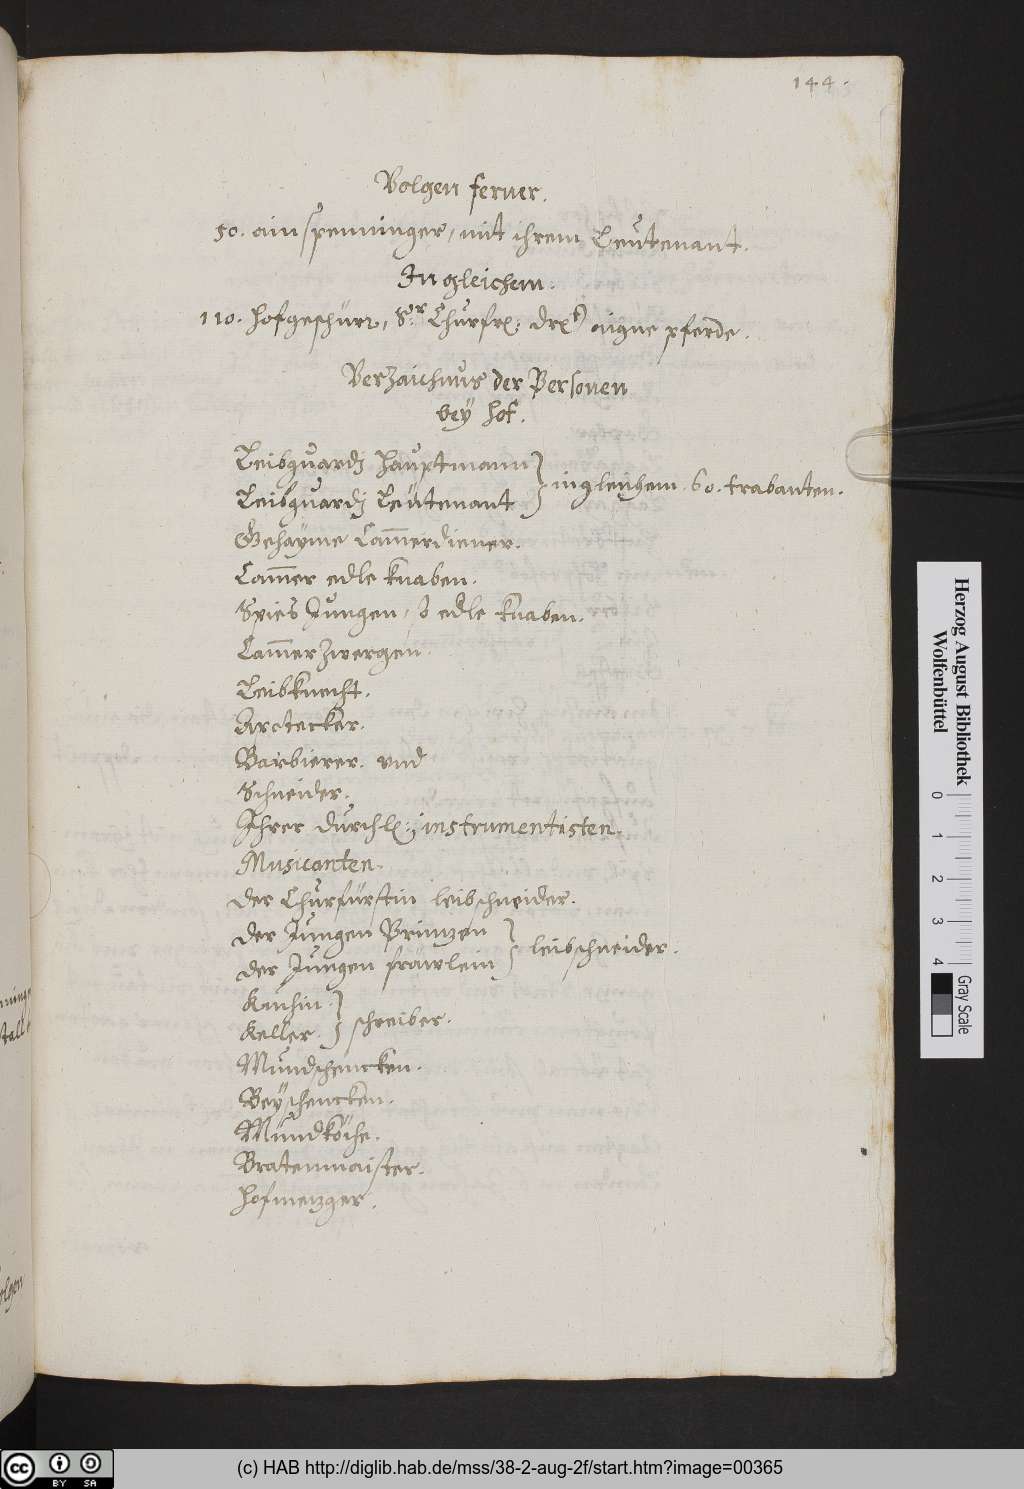 144.
Volgen ferner.
50. ainspenninger, mit ihrem Leutenant.
In gleichem.
110. hofgeschürr, Sr Churfr: drlt aigne pferde.
Verzaichnus der Personen
bey hof.
Leibquardj Hauptmann
Leibquardj Leutenant } ingleichem 60. trabanten.
Gehayme Cam̄erdiener.
Cam̄er edle knaben.
Spies Jungen, so edle knaben.
Cam̄er Zwergen.
Leibknecht.
Apotecker.
Barbierer. vnd
Schneider.
Ihrer Durchl: instrumentisten.
Musicanten.
der Churfürstin leibschneider.
der Jungen Printzen
der Jungen fräwlein } leibschneider.
Kuchin.
Keller. } schreiber.
Mundschencken.
Beyschencken.
Mundköche.
Bratenmaister.
Hofmetzger.
stall
olgen
Herzog August Bibliothek
Wolfenbüttel
0 1 2 3 4
Gray Scale
cc BY SA
(c) HAB http://diglib.hab.de/mss/38-2-aug-2f/start.htm?image=00365